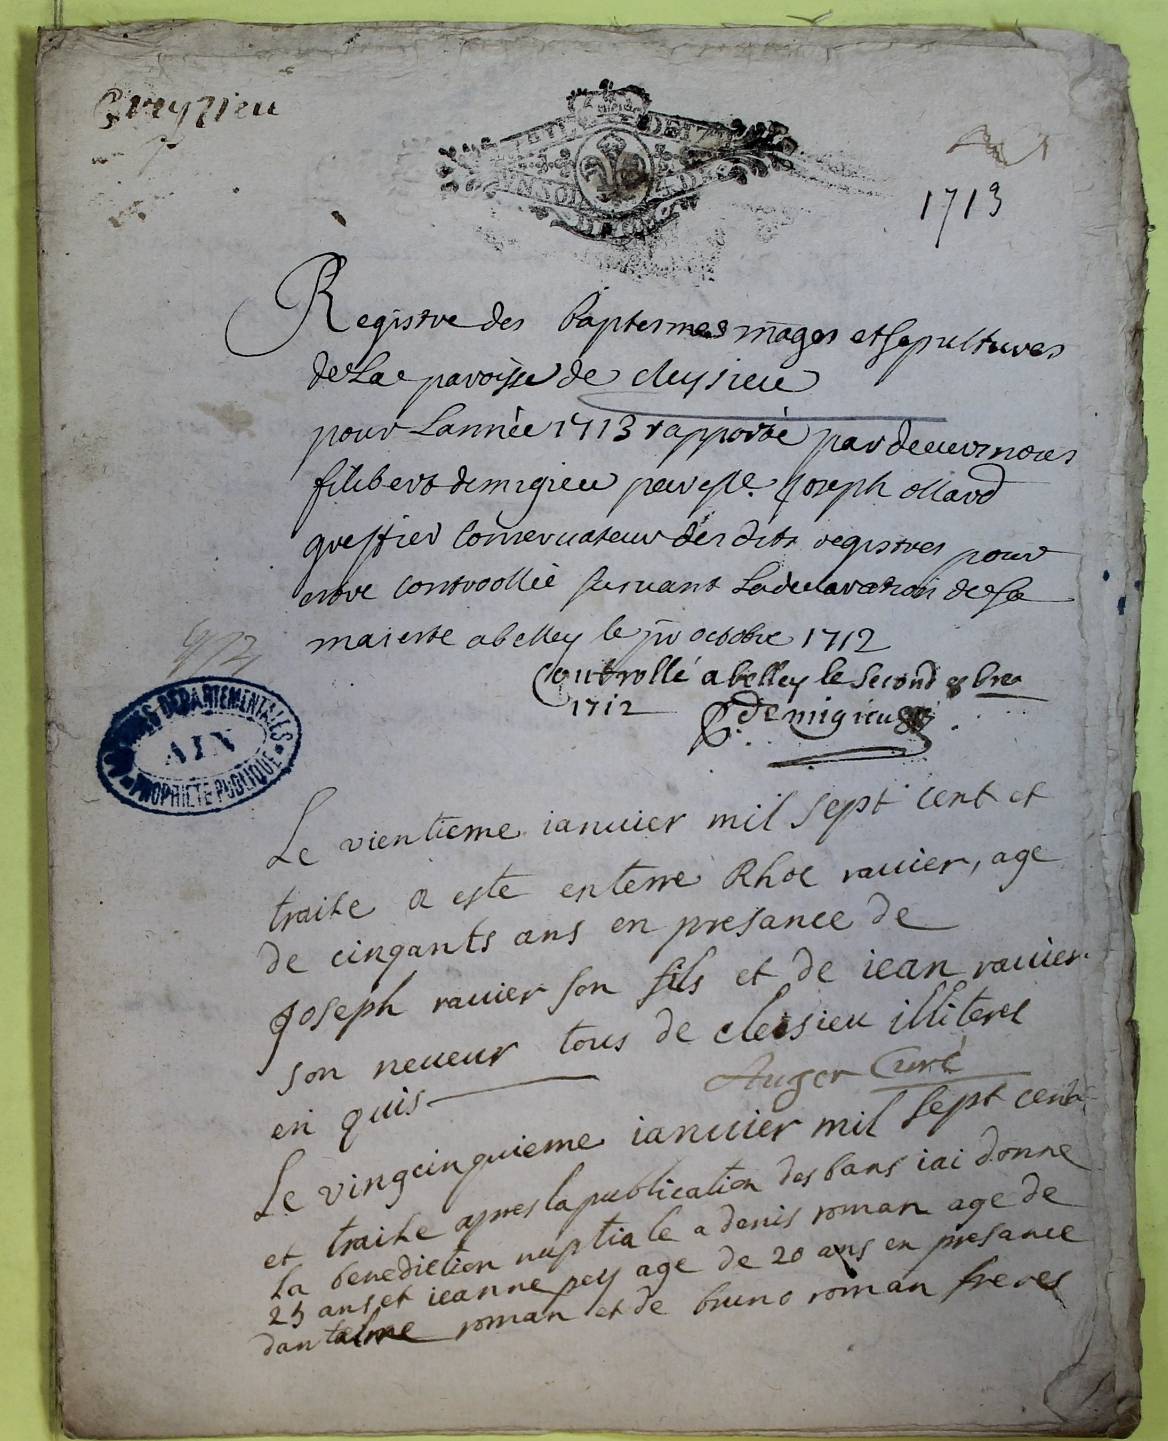 Cleyzieu
1713
Registre des baptesmes mages et sepultures
de La paroisse de cleysieu
pour Lannée 1713 rapporté par deuers nous
filibert demigieu pour Joseph ollard
greffier Conseruateur des dits registres pour
estre controollé suiuant La declaration de sa
maiesté a belley le octobre 1712
Controllé a belley le second
1712 demigieu
ARCHIVES DEPARTEMENTALES
AIN
PROPRIETE PUBLIQUE
Le vientieme ianuier mil sept cent et
traise a este enterre Rhoc rauier, age
de cinqants ans en presance de
Joseph rauier son fils et de iean rauier
son neueur tous de cleisieu illiteres
en quis Auger Curé
Le vingcinquieme ianuier mil sept cent
et traise apres la publication des bans iai donne
la benediction nuptiale a denis roman age de
25 ans et ieanne pey age de 20 ans en presance
dantelme roman et de bruno roman freres